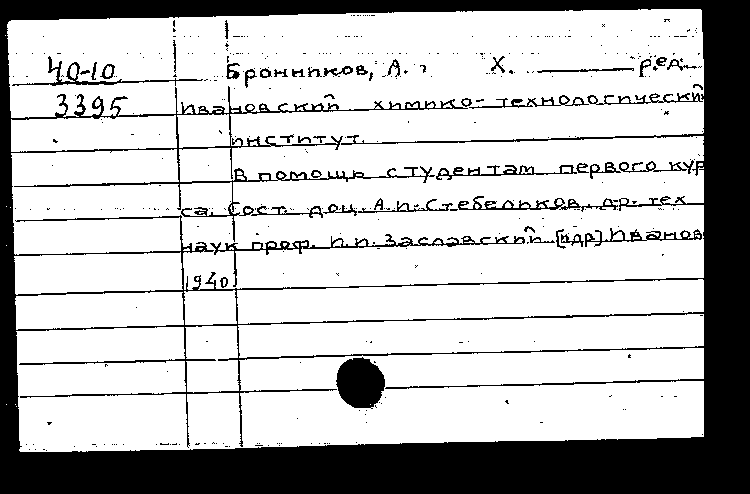 40-10 Бронников, А. Х. ред.
3395 Ивановский химико-технологический
институт.
В помощь студентам первого кур
са. Сост. доц. А.П. Стебельков, др. тех
наук проф. П.П. Заславский [идр]. Иванов
1940